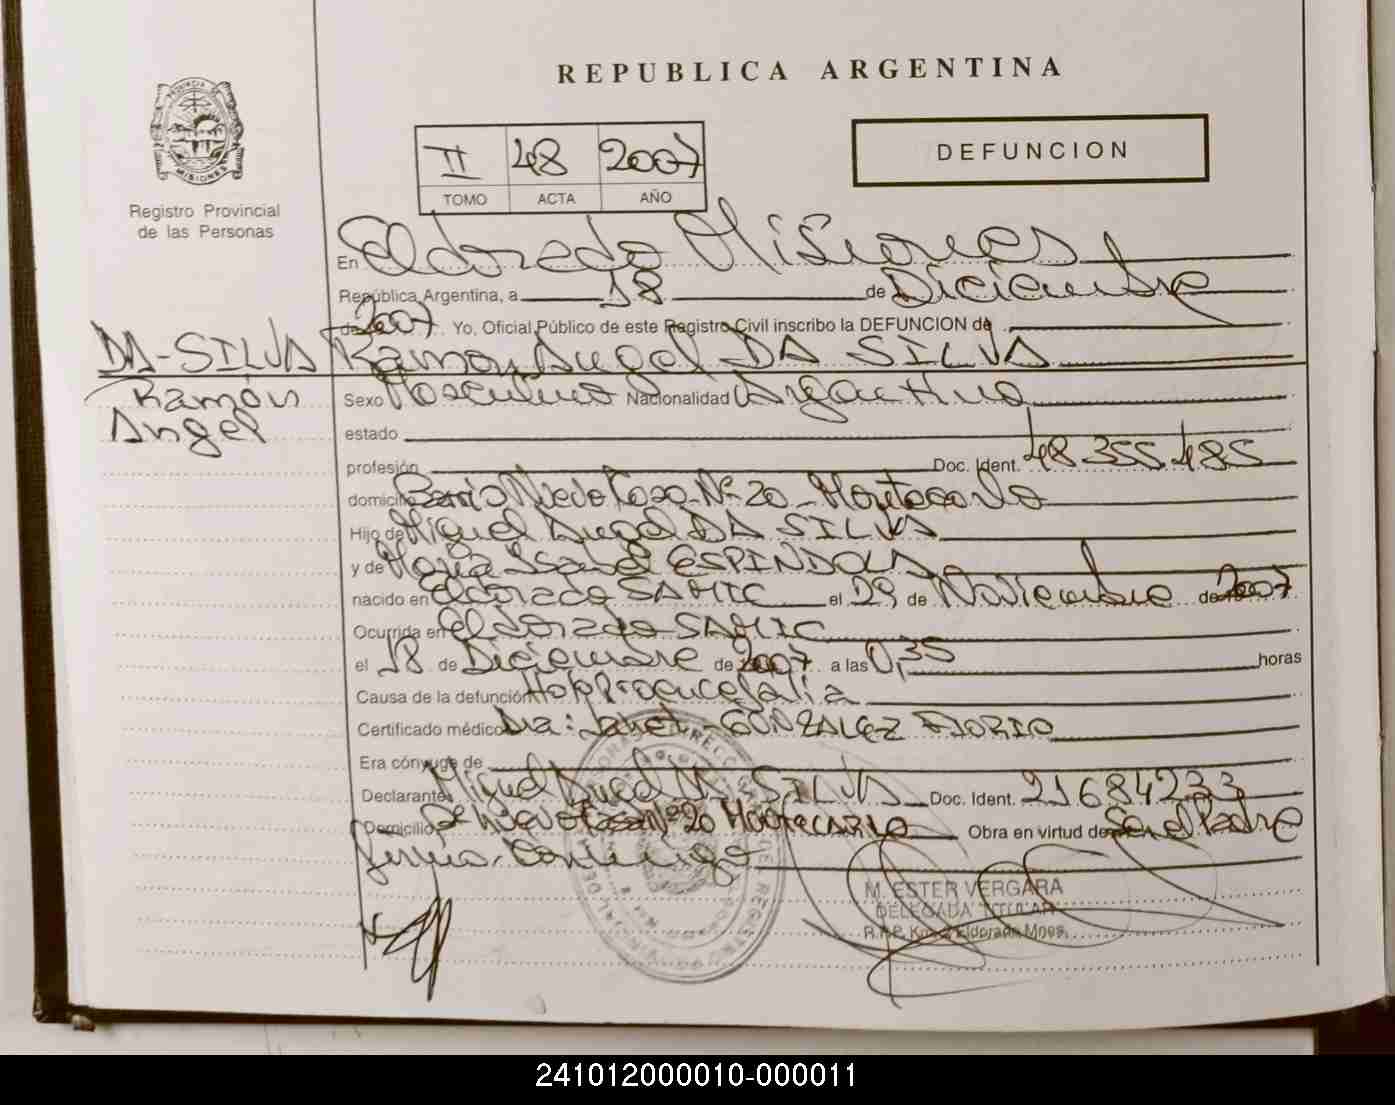 REPUBLICA ARGENTINA
PROVINCIA DE
MISIONES
Registro Provincial
de las Personas
II 48 2007
TOMO ACTA AÑO
DEFUNCION
En Eldorado Misiones
República Argentina, a 18 de Diciembre
de 2007. Yo, Oficial Público de este Registro Civil inscribo la DEFUNCION de
DA-SILVA Ramon Angel DA SILVA
Ramón
Angel
Sexo Masculino Nacionalidad Argentina
estado
profesión Doc. Ident. 48 355 485
domicilio Barrio Nuevo Casa Nº 20 Montecarlo
Hijo de Miguel Angel DA SILVA
y de Maria Isabel ESPINDOLA
nacido en Eldorado SAMIC el 29 de Noviembre de 2007
Ocurrida en Eldorado SAMIC
el 18 de Diciembre de 2007 a las 0,35 horas
Causa de la defunción Holoproencefalia
Certificado médico Dra: Janet GONZALEZ FIORIO
Era cónyuge de
Declarante Miguel Angel DA SILVA Doc. Ident. 21684233
Domicilio Bº Nuevo Casa Nº 20 Montecarlo Obra en virtud de Ser el Padre
firma conmigo
M. ESTER VERGARA
DELEGADA TITULAR
R.P.P. Eldorado Mnes.
241012000010-000011